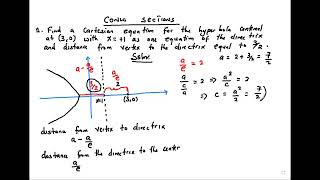 Conic sections
1. Find a Cartesian equation for the hyperbola centred
at (3,0) with x=+1 as one equation of the directrix
and distance from vertex to the directrix equal to 7/2.
Soln
a/e = 2
a = 2 + 3/2 = 7/2
a - a/e
3/2
a/e
2
x=1
(3,0)
a/(c/a) = 2 ⇒ a²/c = 2
⇒ c = a²/2 = (7/2)
2
distance from vertex to directrix
a - a/e
distance from the directrix to the centre
a/e